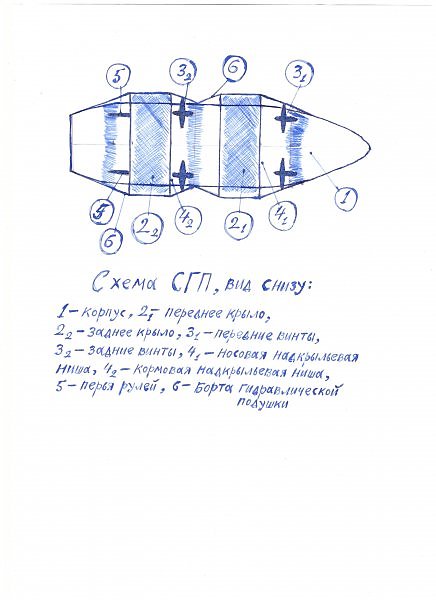 5 3₂ 6 3₁
5 6 2₂ 4₂ 2₁ 4₁ 1
Схема СГП, вид снизу:
1 – корпус, 2₁ – переднее крыло,
2₂ – заднее крыло, 3₁ – передние винты,
3₂ – задние винты, 4₁ – носовая надкрыльевая
ниша, 4₂ – кормовая надкрыльевая ниша,
5 – перья рулей, 6 – Борта гидравлической
подушки